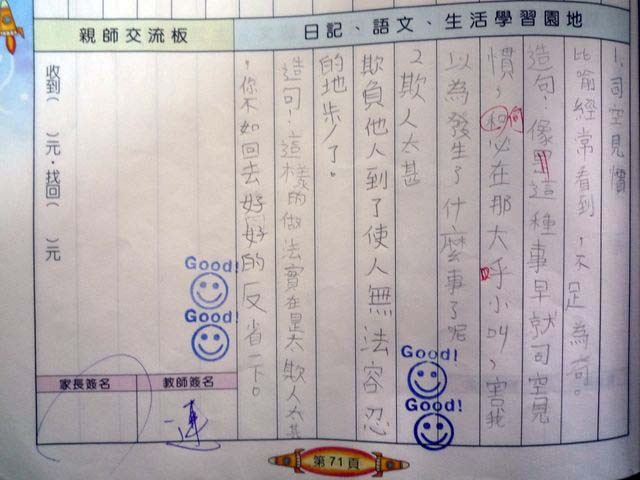 日記、語文、生活學習園地
1、司空見慣
比喻經常看到,不足為奇。
造句:像這種事早就司空見
慣,和何必在那大乎小叫,害我
以為發生了什麼事了呢
2欺人太甚
欺負他人到了使人無法容忍
的地步了。
造句:這樣的做法實在是太欺人太甚
,你不如回去好好的反省一下。
Good!
Good!
Good!
Good!
親師交流板
收到( )元,找回( )元
教師簽名
家長簽名
第71頁